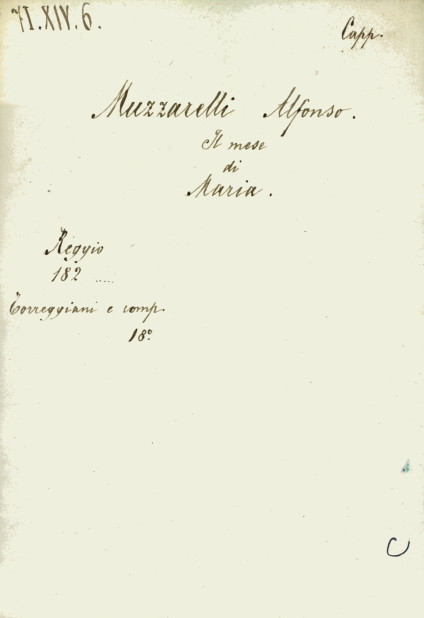 71.XIV.6.
Capp.
Muzzarelli Alfonso.
Il mese
di
Maria.
Reggio
182 .....
Torreggiani e comp.
18°
C